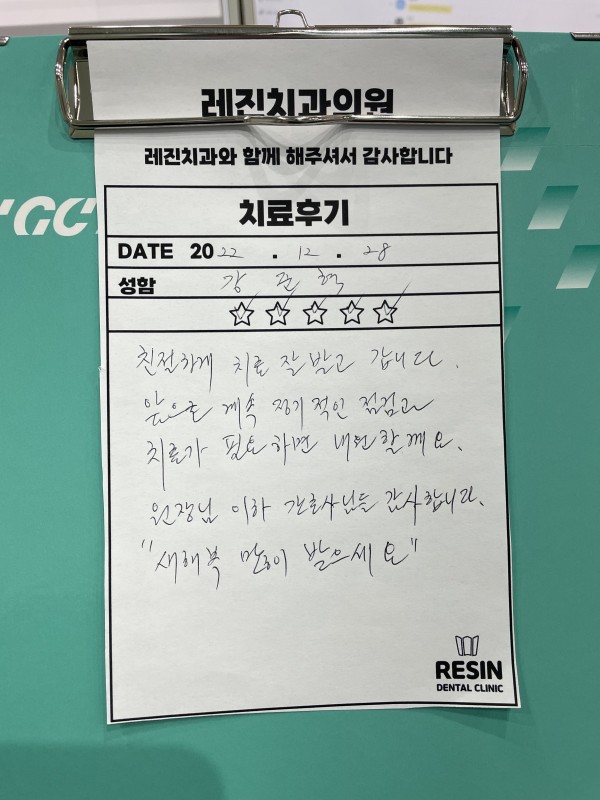 레진치과의원
레진치과와 함께 해주셔서 감사합니다
치료후기
DATE 2022 . 12 . 28
성함 강준혁
친절하게 치료 잘 받고 갑니다.
앞으로 계속 정기적인 점검과
치료가 필요하면 내원할께요.
원장님 이하 간호사님들 감사합니다.
"새해복 많이 받으세요"
RESIN
DENTAL CLINIC
GC